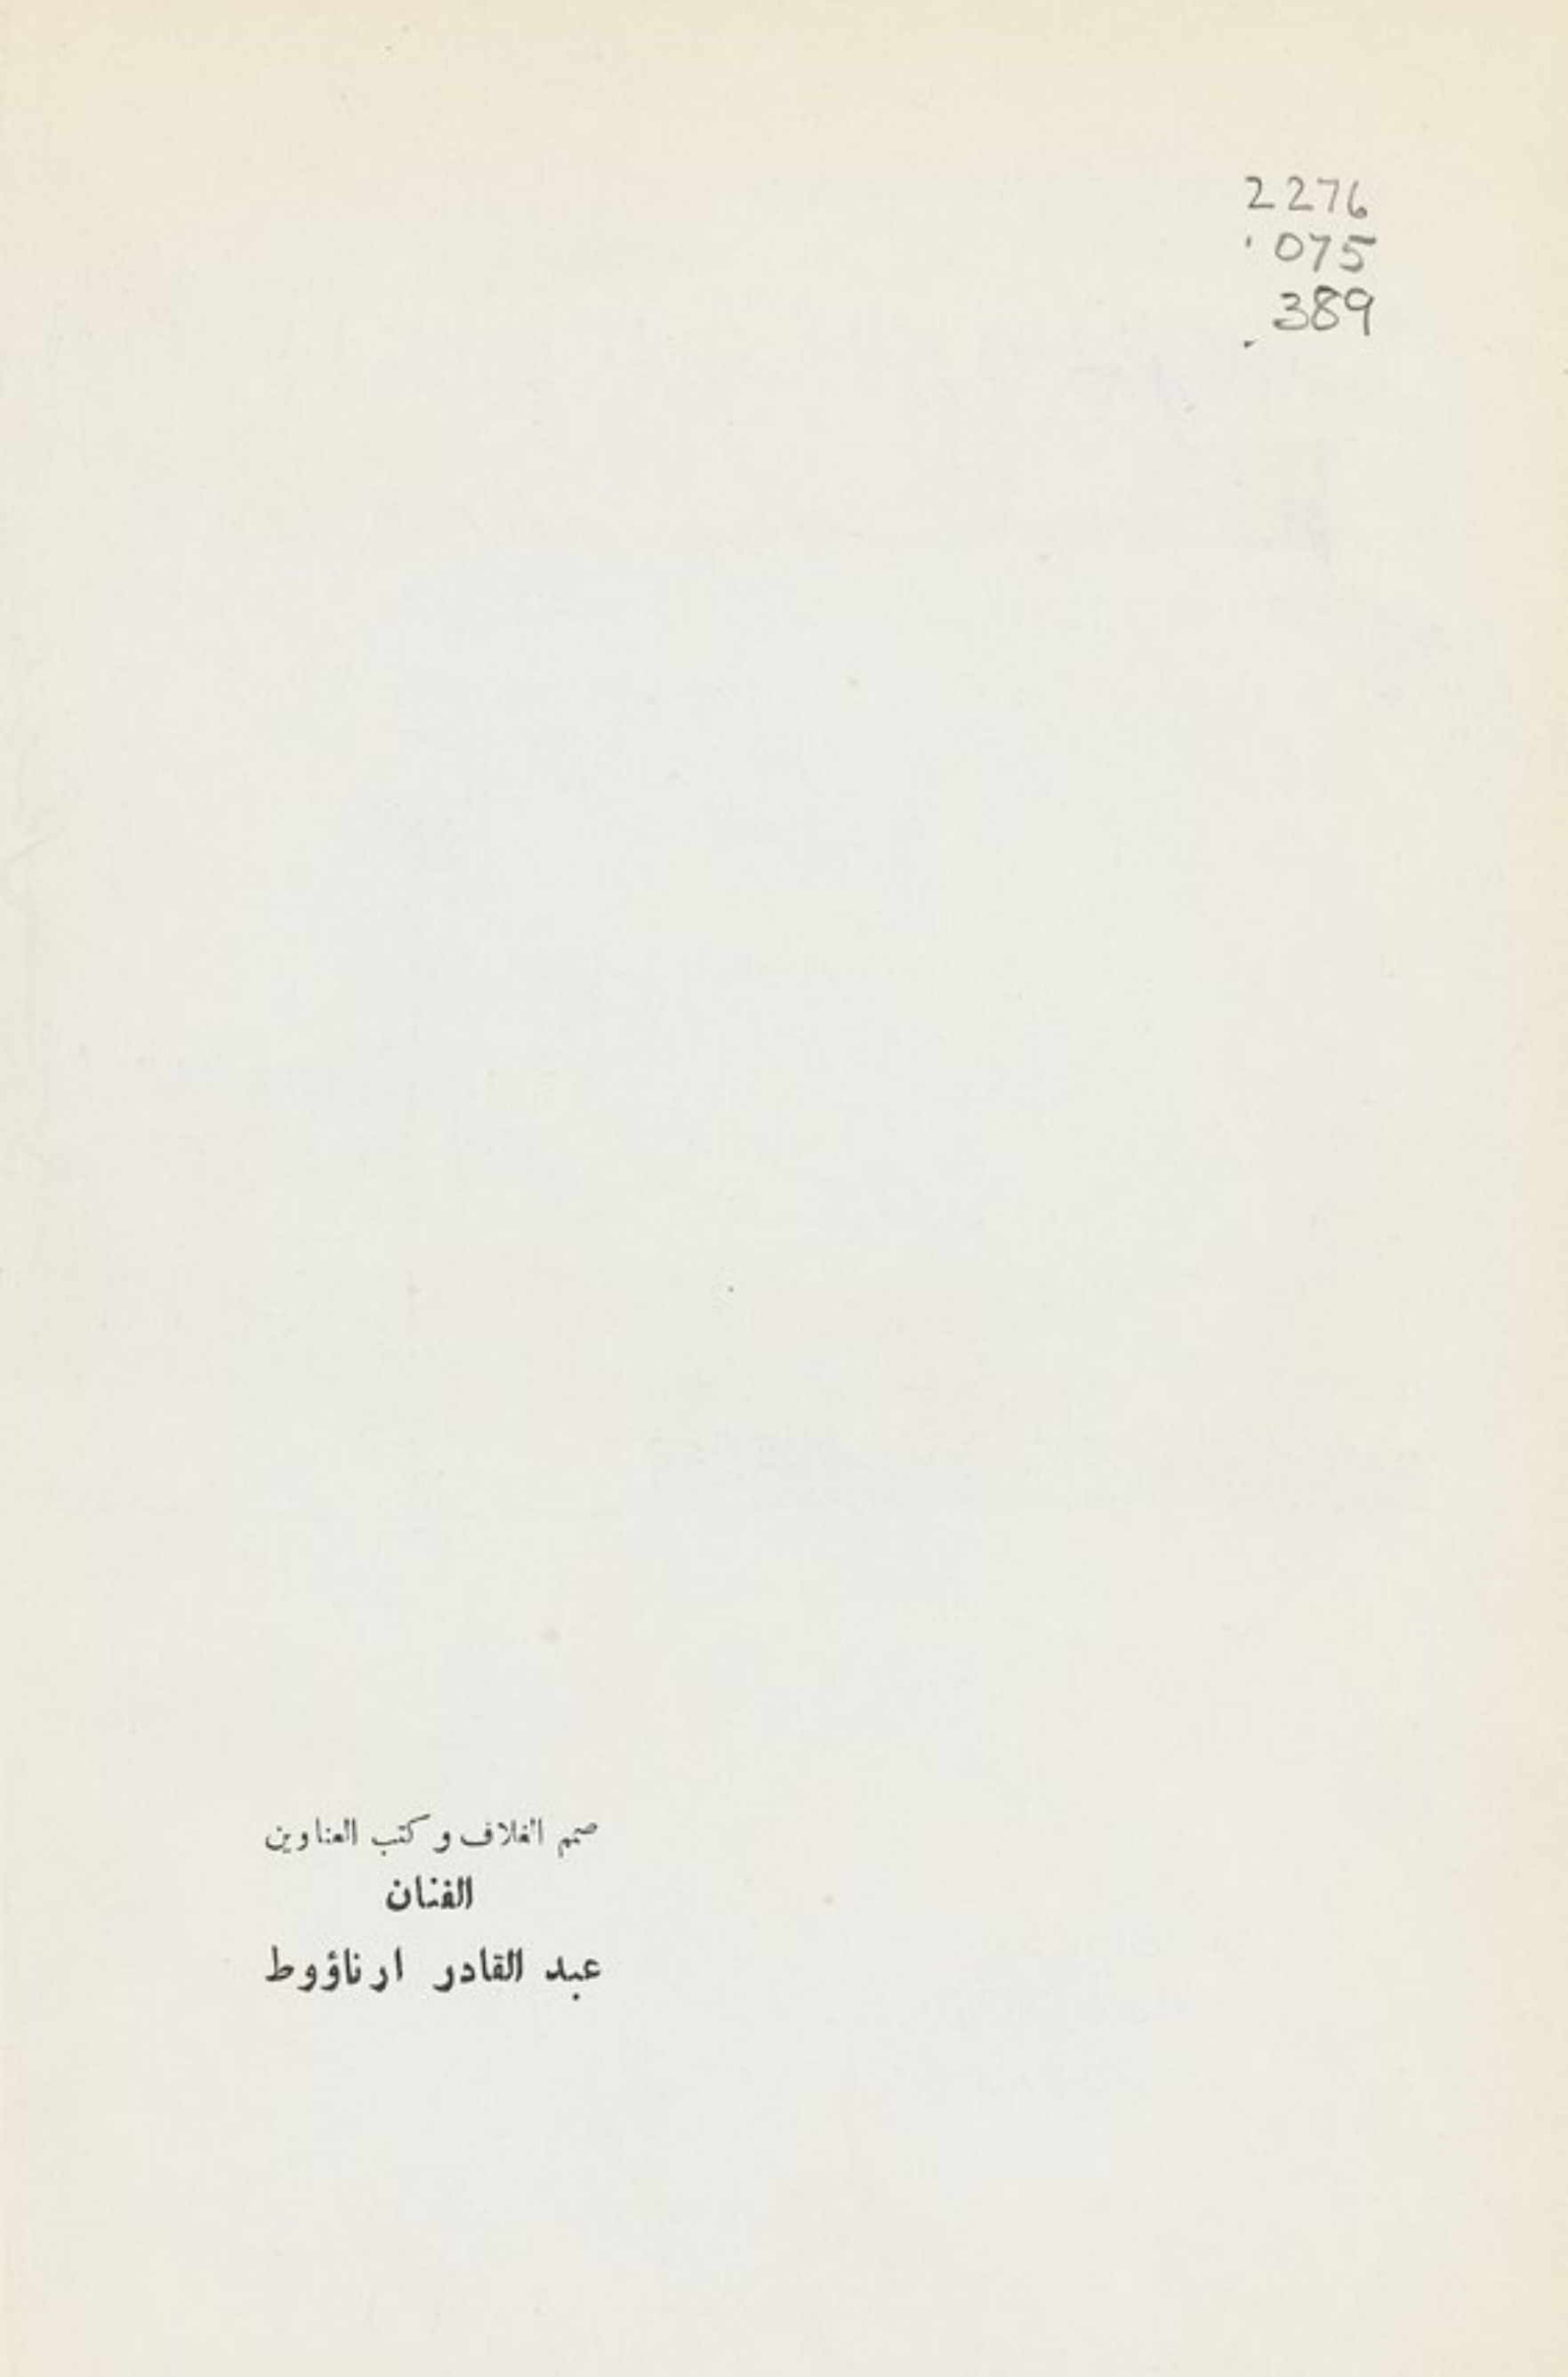 2276
.075
.389
صمم الغلاف وكتب العناوين
الفنان
عبد القادر ارناؤوط